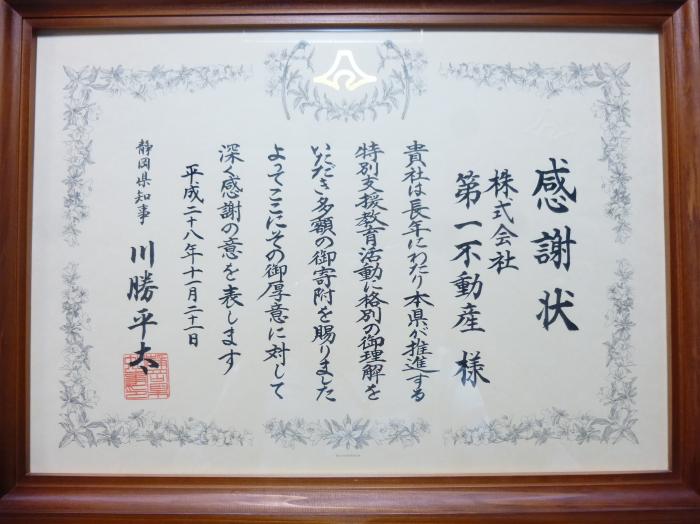 感謝状
株式会社
第一不動産 様
貴社は長年にわたり本県が推進する
特別支援教育活動に格別の御理解を
いただき多額の御寄附を賜りました
よってここにその御厚意に対して
深く感謝の意を表します
平成二十八年十一月二十一日
静岡県知事 川勝平太